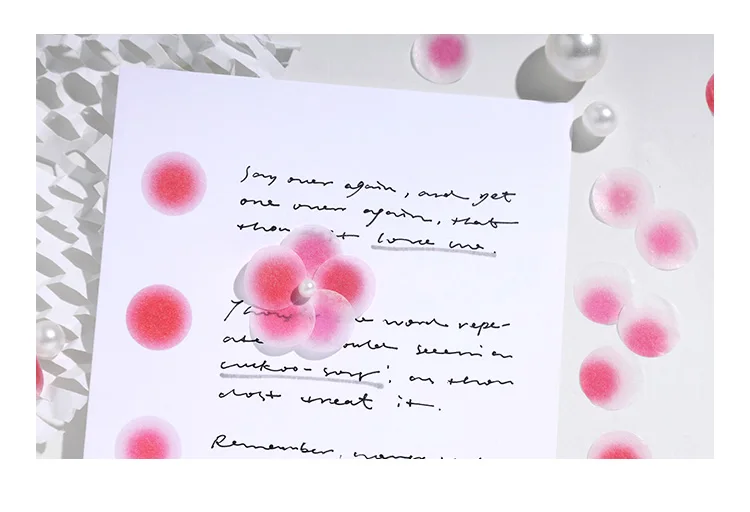 Say over again, and yet
one over again, that
thou love me.
word repe-
ate seem an
cuckoo-song; as thou
dost treat it.
Remember,